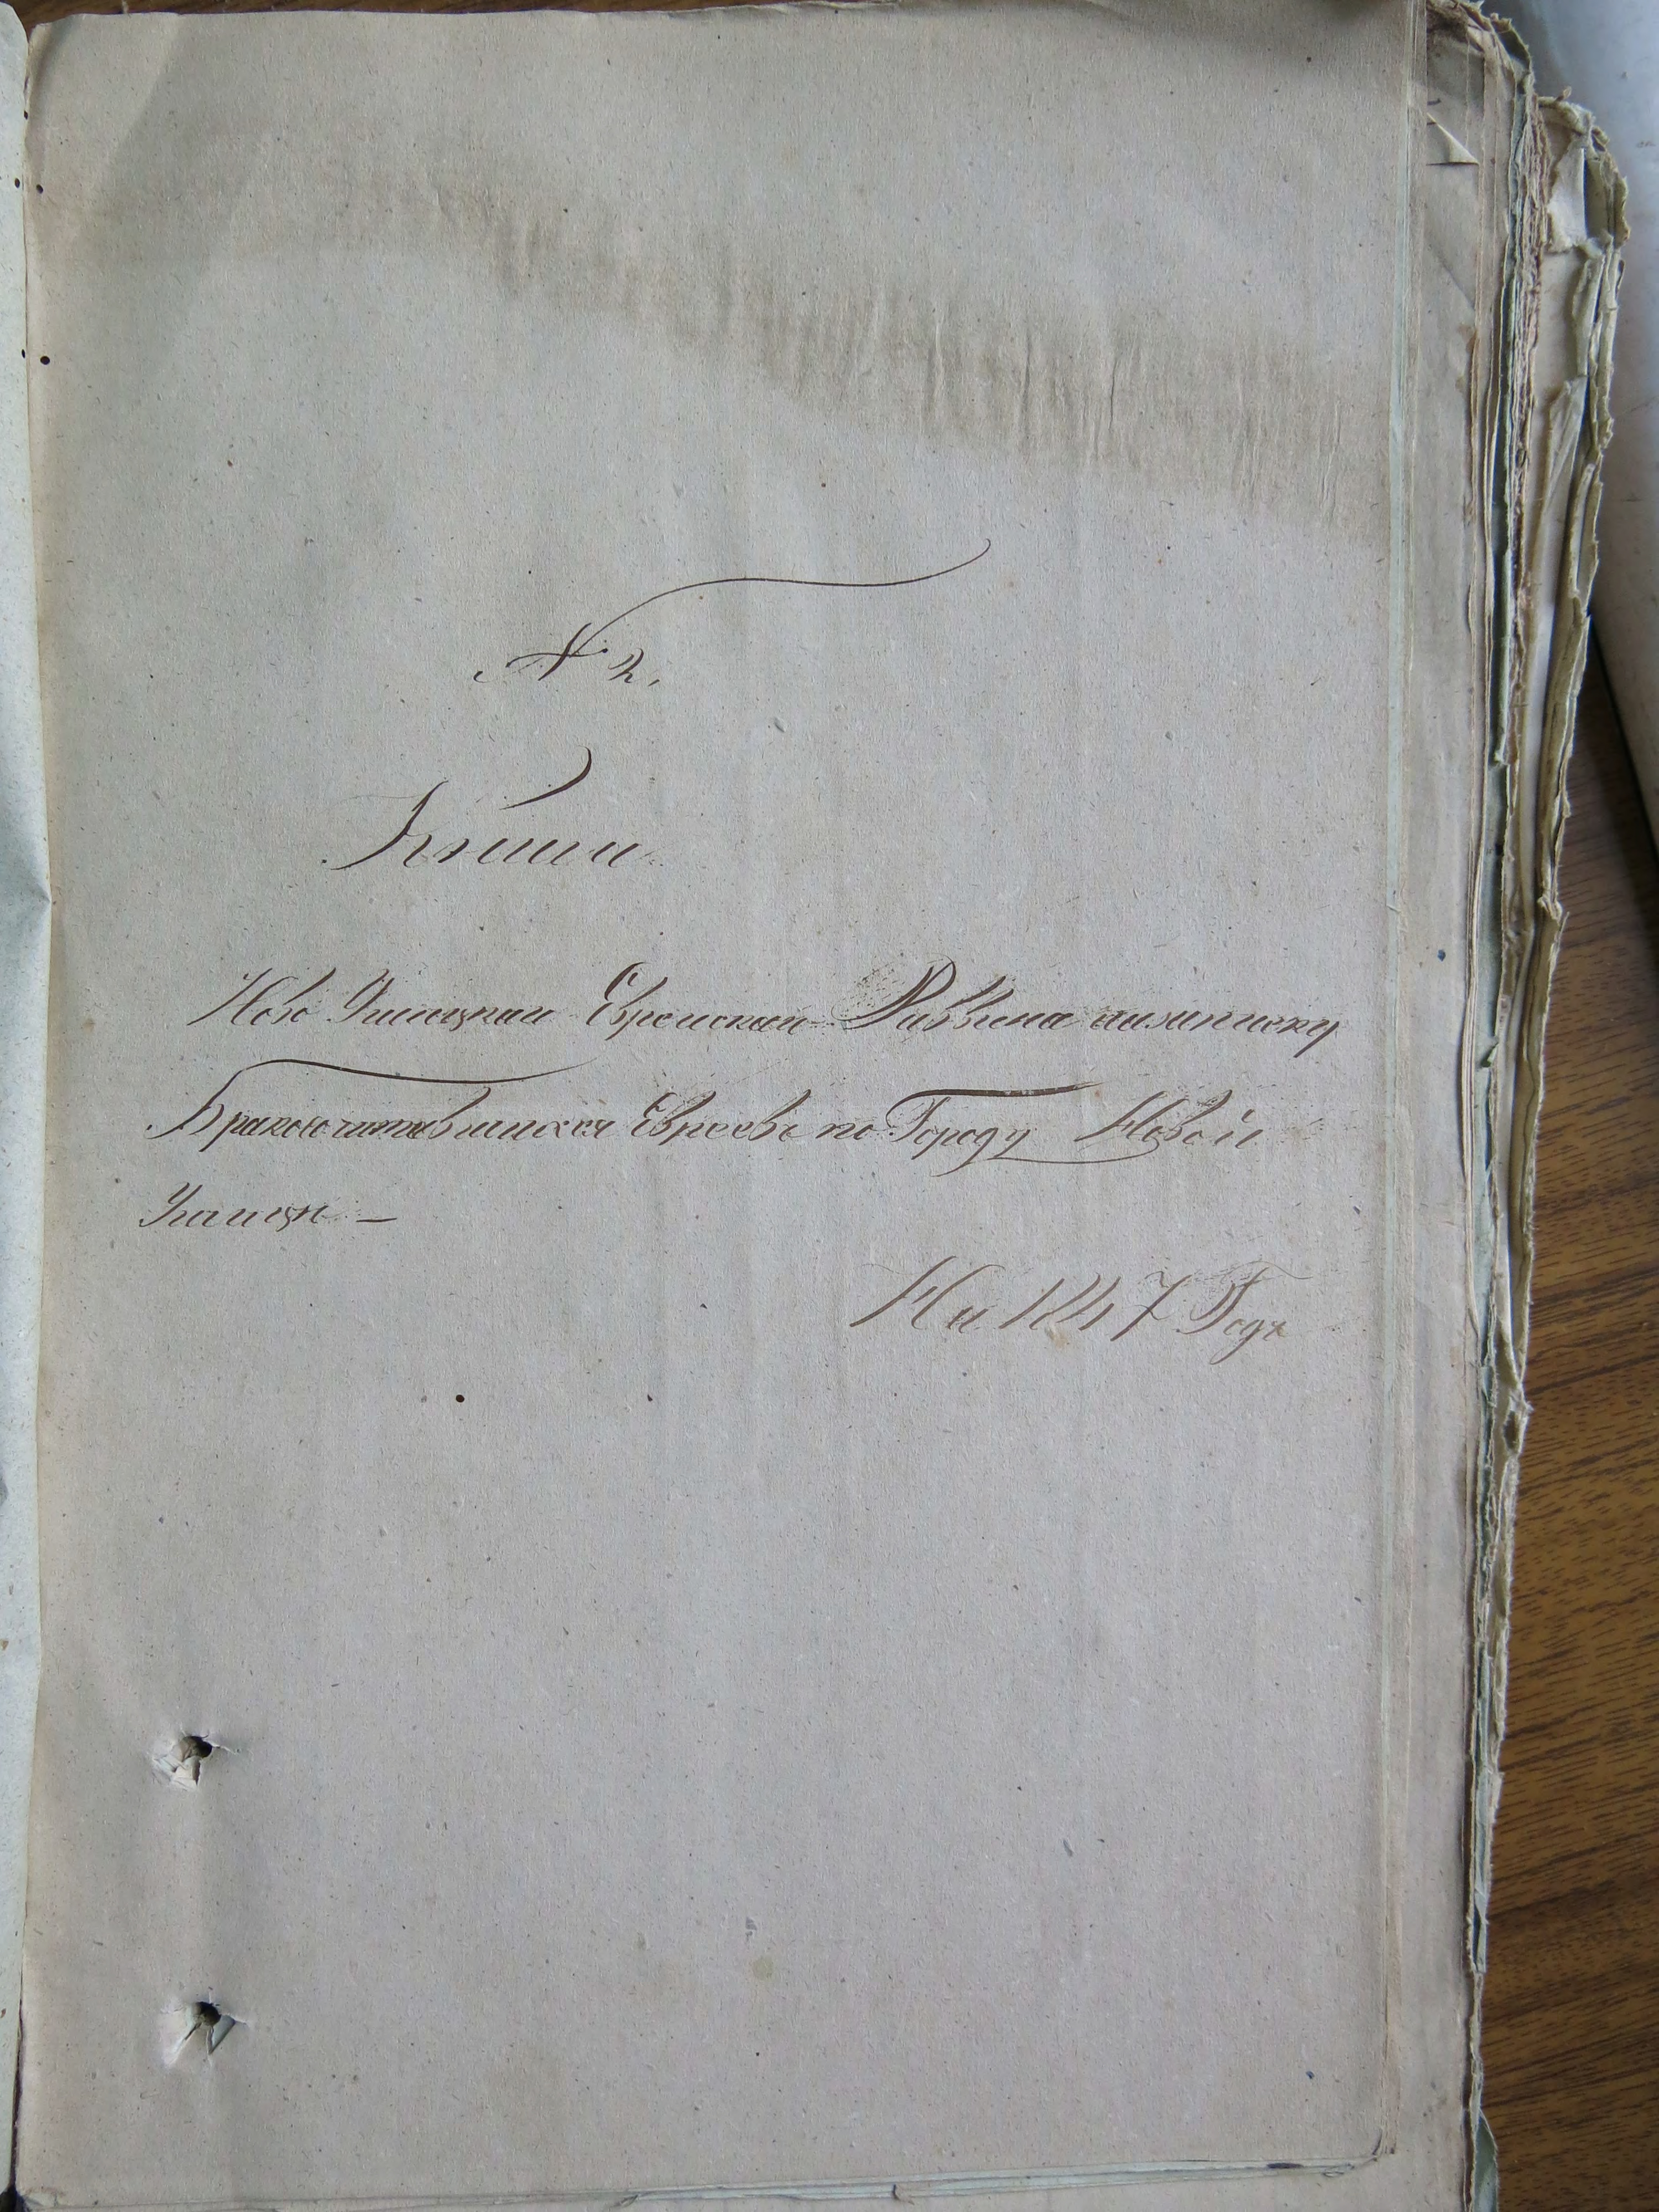 № 2.
Копии
Ново Ушицкаи Евреискаи Раввина
Бракосочитавшихся Евреевъ по Городу Новой
Ушицы —
На 1847 Годъ